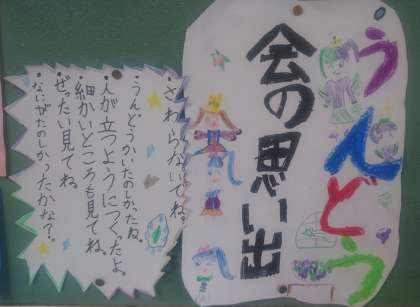 うんどう
会の思い出
・さわらないでね。
・うんどうかいたのしかったね。
・人が立つようにつくったよ。
・細かいところも見てね。
・ぜったい見てね。
・なにがたのしかったかな？